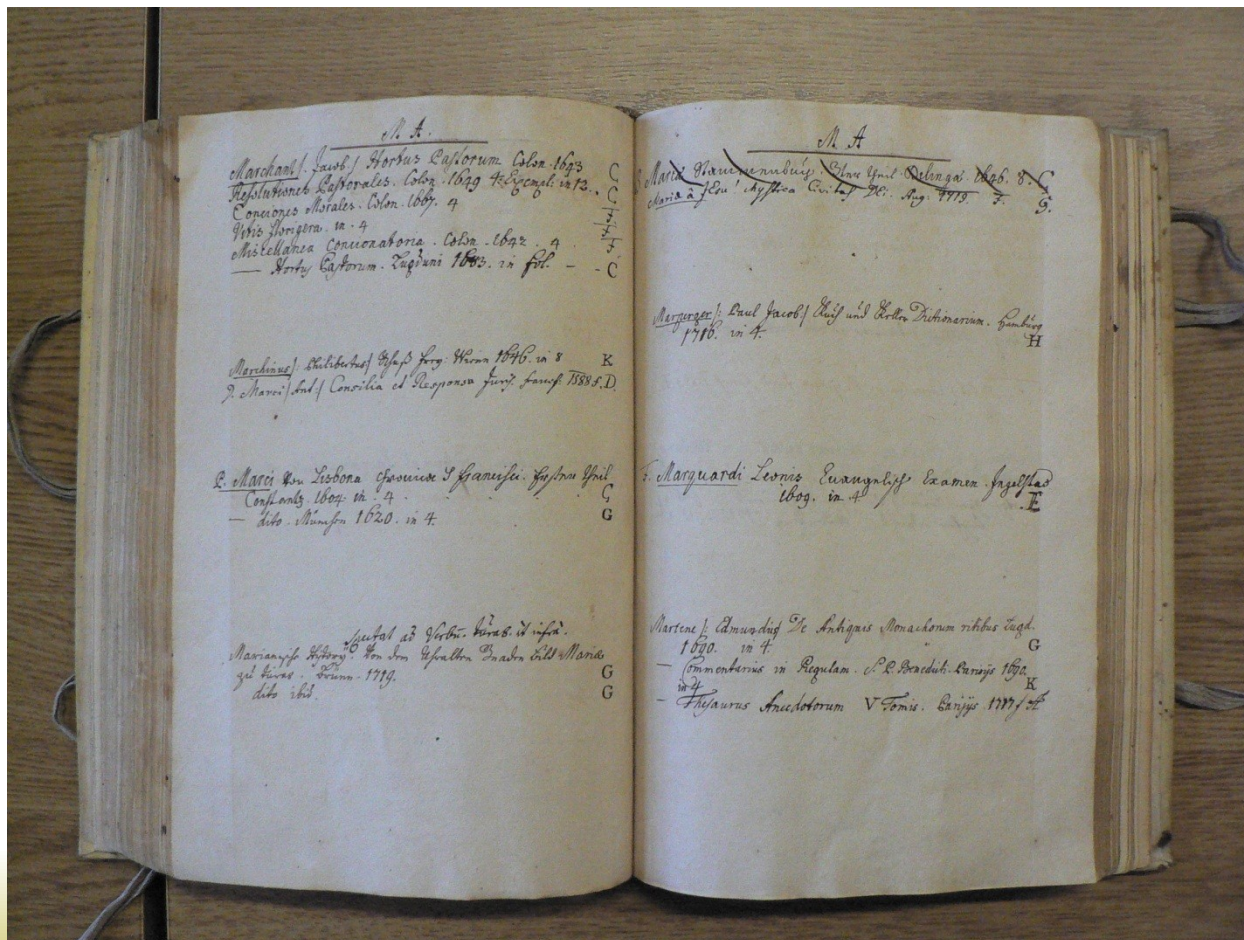 M A.
Marchant /. Jacob. / Hortus Pastorum Colon. 1643 C
Resolutiones Pastorales. Colon. 1649 4 Exempl: in 12. C
Conciones Morales. Colon. 1667. 4
Vitis florigera. in. 4
Miscellanea Concionatoria. Colon. 1642. 4
— Hortus Pastorum. Lugduni 1683. in fol. - - C
Marchinus /: Philibertus / 1646. in 8 K
Marci / Ant: / Consilia et Responsa Jury. 1588 D
P. Marci von Lisbona S Francisci. Theil
Constantz. 1604. in. 4. G
— dito. München 1620. in 4. G
Spectat ad Verbū. Turas. ut infra.
Marianische History. Von dem Uhralten Gnaden Bild Mariæ
zu Turas. Brünn. 1719. G
dito ibid. G
M A
Maria Theil Delingæ. 1696. 8. C
Maria à Jesu! Mystica Civitas Dei. Aug: 1719. 3. G.
Marperger /: Paul Jacob. / Kuch und Keller Dictionarium. Hamburg
1716. in 4. H
Marquardi Leonis Evangelisch Examen. Ingolstad
1609. in 4 E
Martene /: Edmundus De Antiquis Monachorum ritibus Lugd.
1690. in 4 G
— Commentarius in Regulam. S. P. Benedicti. Parisijs 1690.
in 4 K
— Thesaurus Anecdotorum V Tomis. Parisijs 1717 f A